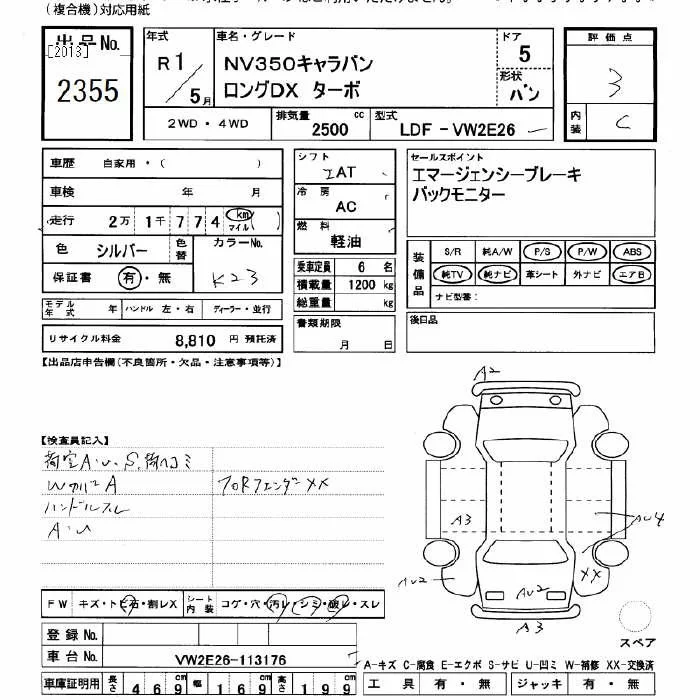 (複合機)対応用紙
出品No.
[2013]
2355
年式
R1/5月
車名・グレード
NV350キャラバン
ロングDX ターボ
ドア
5
形状
バン
評価点
3
内装
C
2WD・4WD
排気量
2500 cc
型式
LDF-VW2E26
車歴 自家用・( )
車検 年 月
走行 2万1千774 km マイル( )
色 シルバー
色替
カラーNo.
K23
保証書 有・無
モデル年式 年 ハンドル 左・右 ディーラー・並行
リサイクル料金 8,810 円 預託済
シフト
IAT
冷房
AC
燃料
軽油
乗車定員 6 名
積載量 1200 kg
総重量 kg
書類期限
月 日
セールスポイント
エマージェンシーブレーキ
バックモニター
装備品
S/R 純A/W P/S P/W ABS
純TV 純ナビ 革シート 外ナビ エアB
ナビ型番:
後日品
【出品店申告欄(不良箇所・欠品・注意事項等)】
【検査員記入】
荷室A・U、S、荷ヘコミ
WカバーA
フロRフェンダーXX
ハンドルスレ
A・U
A2
A3
AU4
AU2
XX
AU2
A3
スペア
FW キズ・トビ石・割レX
シート内装 コゲ・穴・汚レ・シミ・破レ・スレ
登録No.
車台No. VW2E26-113176
車庫証明用 長さ 469cm 幅 169cm 高さ 199cm
A-キズ C-腐食 E-エクボ S-サビ U-凹ミ W-補修 XX-交換済
工具 有・無 ジャッキ 有・無